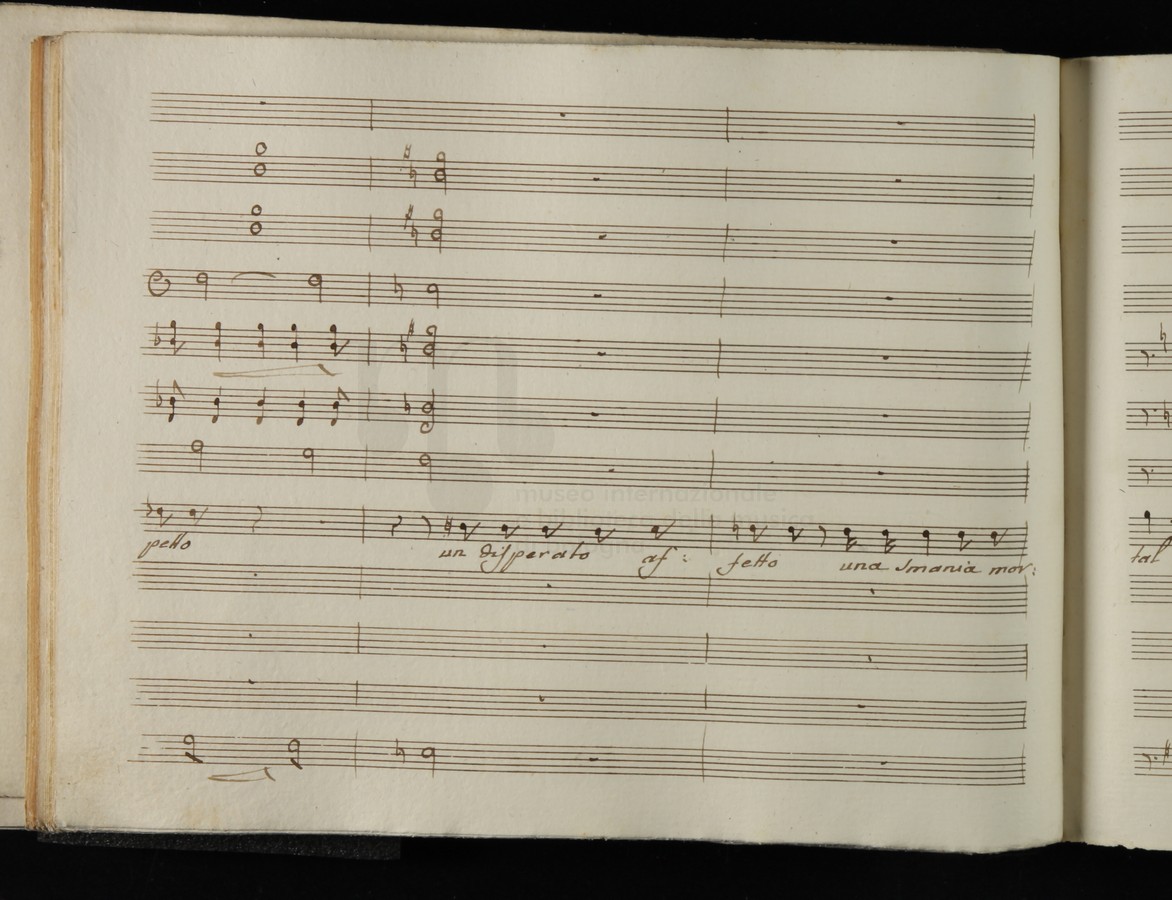 petto un disperato af: fetto una smania mor:
tal
museo internazionale
biblioteca della musica